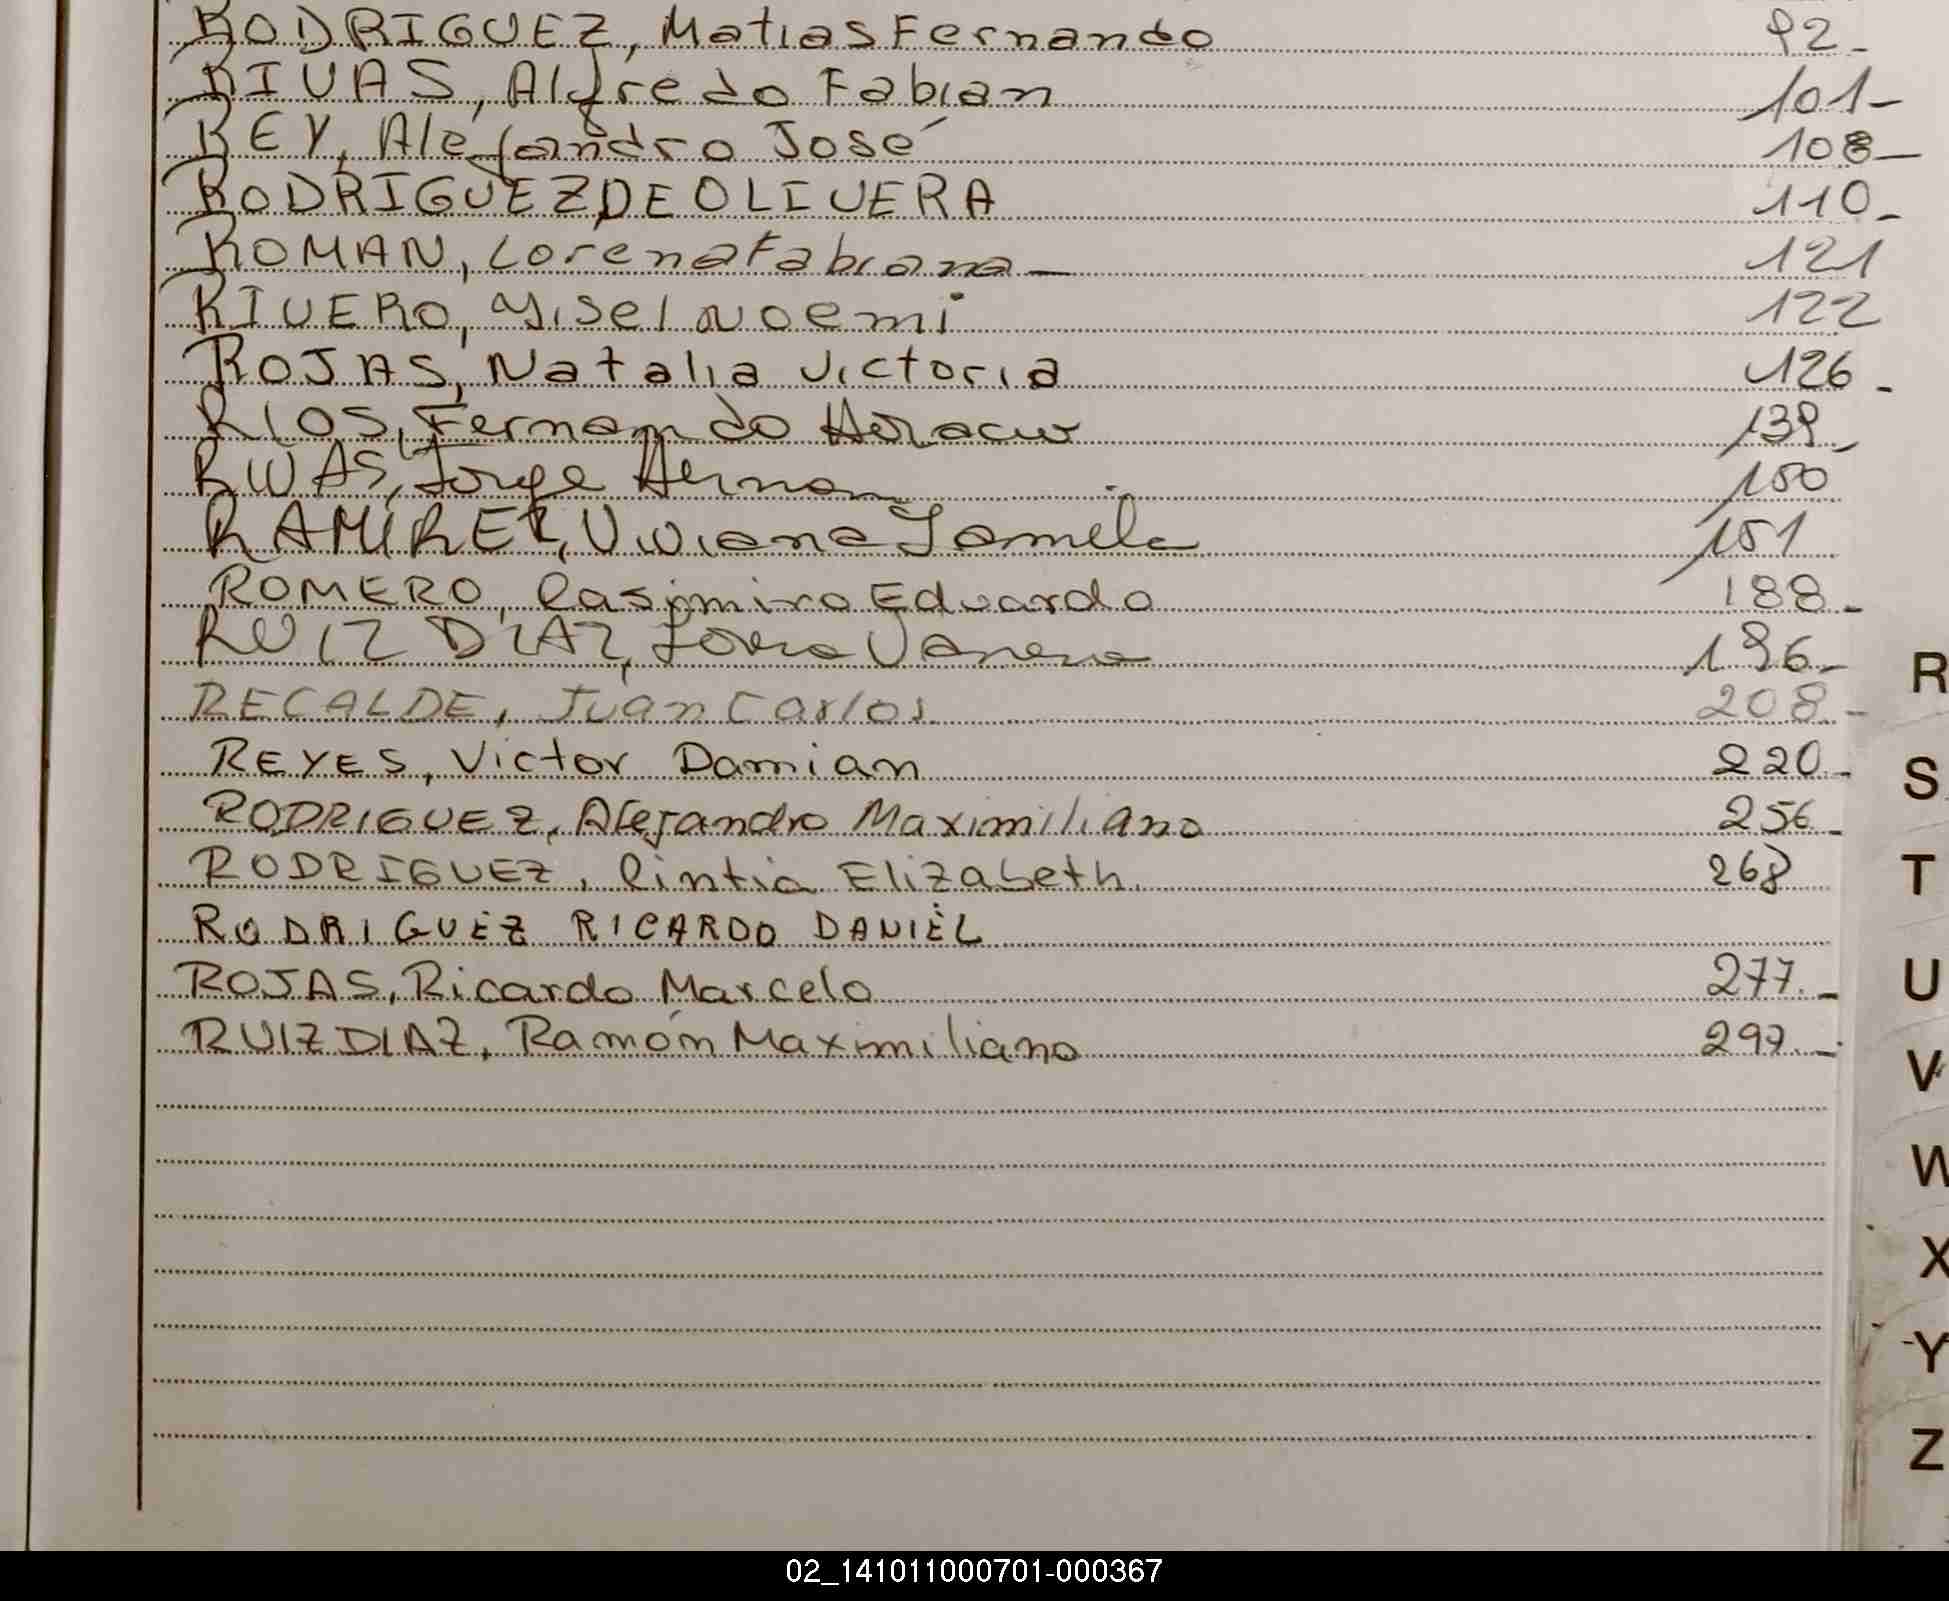 RODRIGUEZ, Matias Fernando 92-
RIVAS, Alfredo Fabian 101-
REY, Alejandro José 108-
RODRIGUEZ DE OLIVERA 110-
ROMAN, Lorena Fabiana - 121
RIVERO, Yisel Noemi 122
ROJAS, Natalia Victoria 126-
RIOS, Fernando Horacio 139-
RIVAS, Jorge Hernan 150
RAMIREZ, Viviana Yamila 151
ROMERO, Casimiro Eduardo 188-
RUIZ DIAZ, Vanesa 196-
RECALDE, Juan Carlos 208-
REYES, Victor Damian 220-
RODRIGUEZ, Alejandro Maximiliano 256-
RODRIGUEZ, Cintia Elizabeth. 268
RODRIGUEZ RICARDO DANIEL
ROJAS, Ricardo Marcelo 277-
RUIZ DIAZ, Ramón Maximiliano 297-
R
S
T
U
V
W
X
Y
Z
02_141011000701-000367